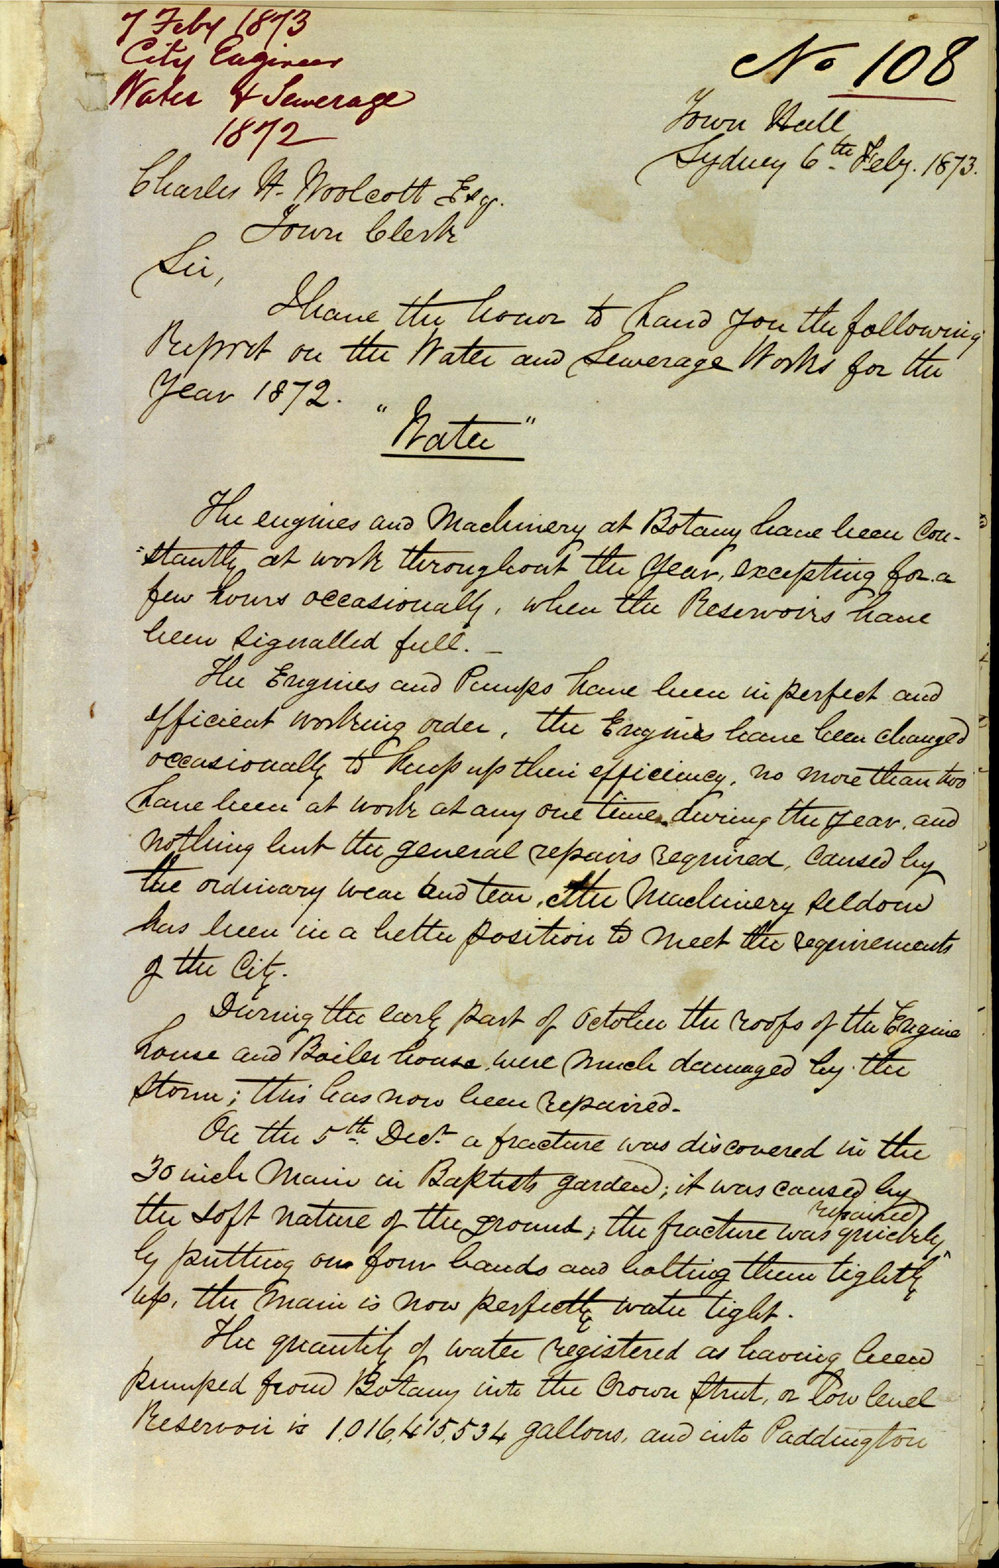 7 Feby 1873
City Engineer
Water & Sewerage
1872
No 108
Town Hall
Sydney 6th Feby. 1873.
Charles H. Woolcott Esq.
Town Clerk
Sir,
I have the honor to hand you the following
Report on the Water and Sewerage Works for the
Year 1872.
"Water"
The engines and Machinery at Botany have been con-
=stantly at work throughout the Year, excepting for a
few hours occasionally, when the Reservoirs have
been signalled full. _
The Engines and Pumps have been in perfect and
efficient working order, the Engines have been changed
occasionally to keep up their efficiency, no more than two
have been at work at any one time during the year, and
nothing but the general repairs required, caused by
the ordinary wear and tear, the Machinery seldom
has been in a better position to meet the requirements
of the City.
During the early part of October the roofs of the Engine
house and Boiler house were much damaged by the
Storm; this has now been repaired.
On the 5th Decr. a fracture was discovered in the
30 inch Main in Baptists garden; it was caused by
the soft nature of the ground; the fracture was repaired quickly
by putting on four bands and bolting them tightly
up, the main is now perfectly water tight.
The quantity of water registered as having been
pumped from Botany into the Crown Street, or low level
Reservoir is 1,016,415,534 gallons, and into Paddington